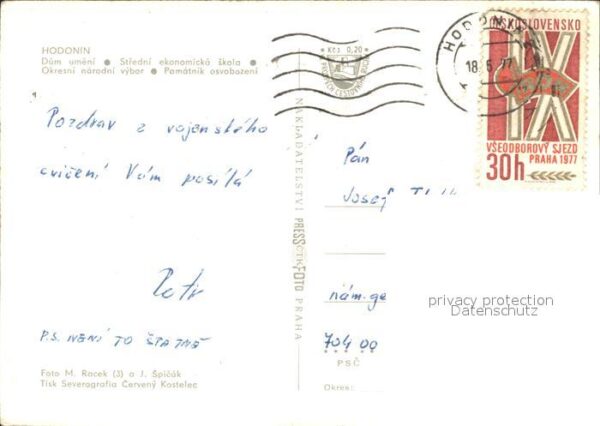 HODONIN
Dům umění ● Střední ekonomická škola ●
Okresní národní výbor ● Památník osvobození
Pozdrav z vojenského
cvičení Vám posílá
Petr
P.S. NENÍ TO ŠPATNÉ
Foto M. Racek (3) a J. Špičák
Tisk Severografia Červený Kostelec
NAKLADATELSTVÍ PRESSFOTO PRAHA
Kčs 0,20
HODONÍN
18.6.77
ČESKOSLOVENSKO
IX
VŠEODBOROVÝ SJEZD
PRAHA 1977
30h
Pán
Josef
nám. ge
704 00
PSČ
Okres:
privacy protection
Datenschutz